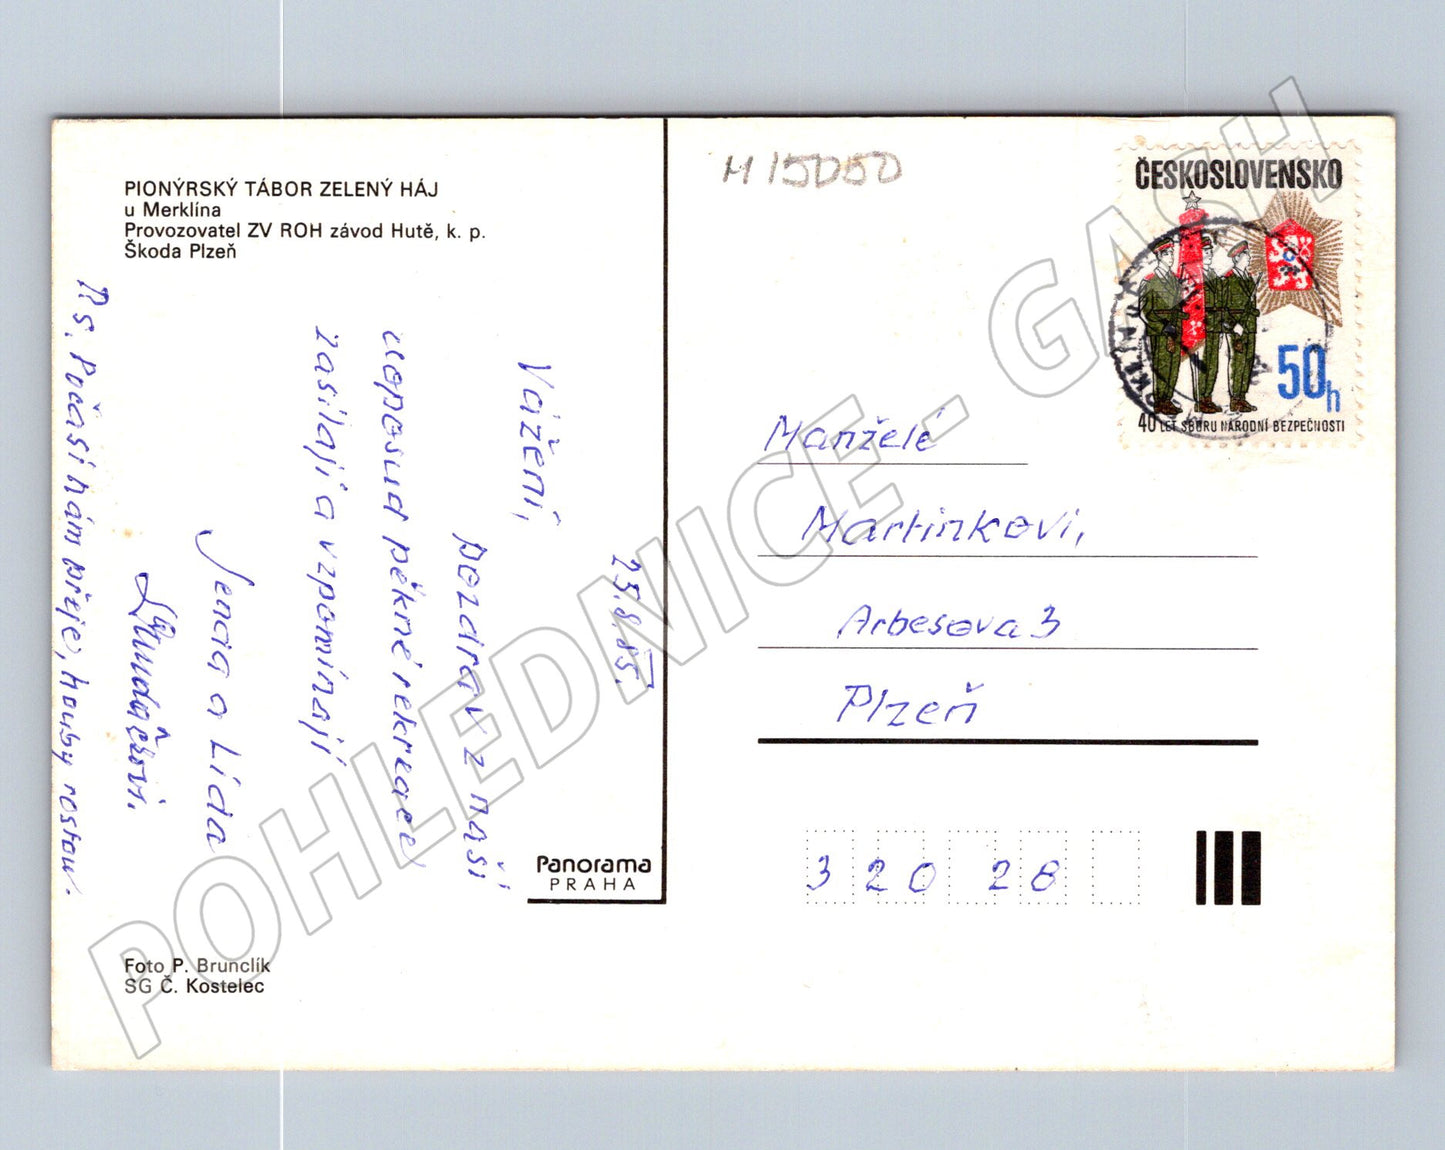 PIONÝRSKÝ TÁBOR ZELENÝ HÁJ
u Merklína
Provozovatel ZV ROH závod Hutě, k. p.
Škoda Plzeň
25.8.85.
Vážení,
pozdrav z naší
doposud pěkné rekreace
zasílají a vzpomínají
Jenda a Lída
P.S. Počasí nám přeje, houby rostou.
Panorama
PRAHA
Foto P. Brunclík
SG Č. Kostelec
M 15050
ČESKOSLOVENSKO
50h
40 LET SBORU NÁRODNÍ BEZPEČNOSTI
Manželé
Martinkovi,
Arbesova 3
Plzeň
320 28
POHLEDNICE - GASH